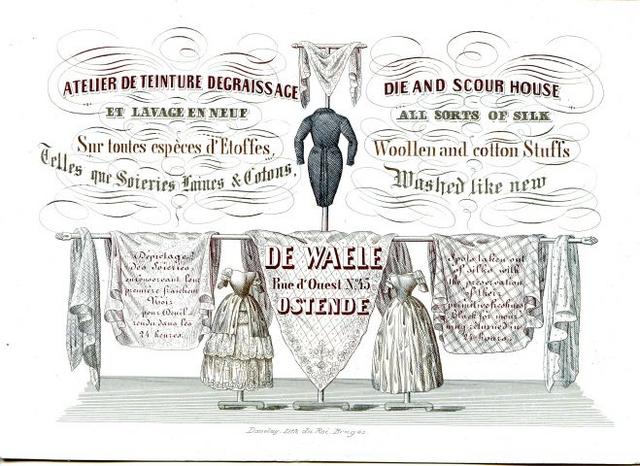 ATELIER DE TEINTURE DEGRAISSAGE
ET LAVAGE EN NEUF
Sur toutes espèces d'Etoffes,
Telles que Soieries Laines & Cotons,
DIE AND SCOUR HOUSE
ALL SORTS OF SILK
Woollen and cotton Stuffs
Washed like new
Dégietage
des Soieries
en conservant leur
première fraicheur
Noir
pour Deuil
rendu dans les
24 heures.
DE WAELE
Rue d'Ouest No. 45
OSTENDE
Spots taken out
of silks with
the preservation
of their
primitive freshness
Black for mour
ning returned in
24 hours.
Daveluy, Lith. du Roi, Bruges